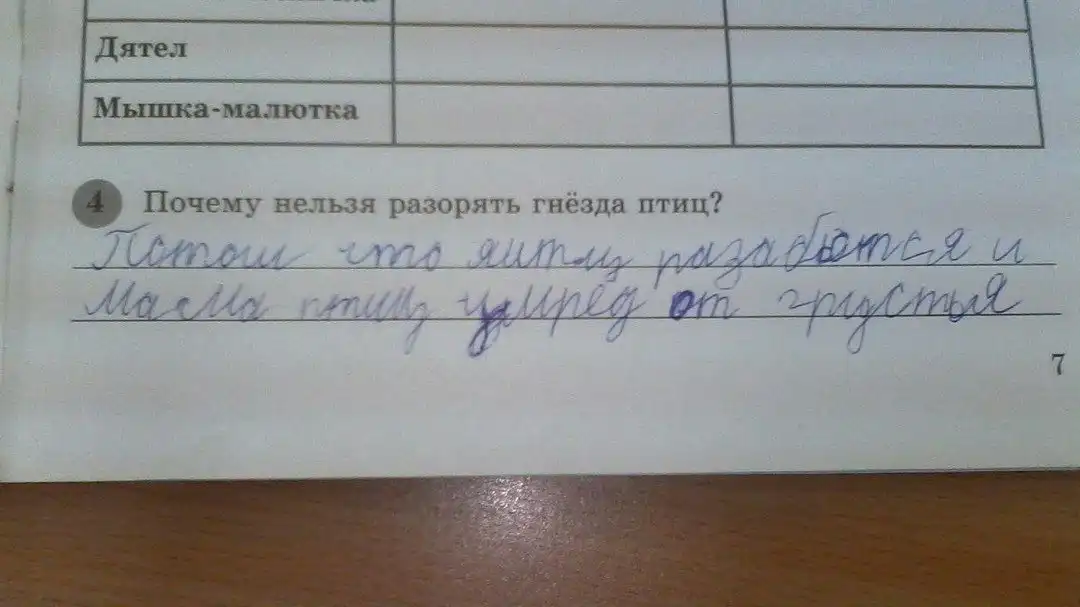 Дятел
Мышка-малютка
4 Почему нельзя разорять гнёзда птиц?
Потом что яитц разабются и
мама птиц умрёд от грустья
7